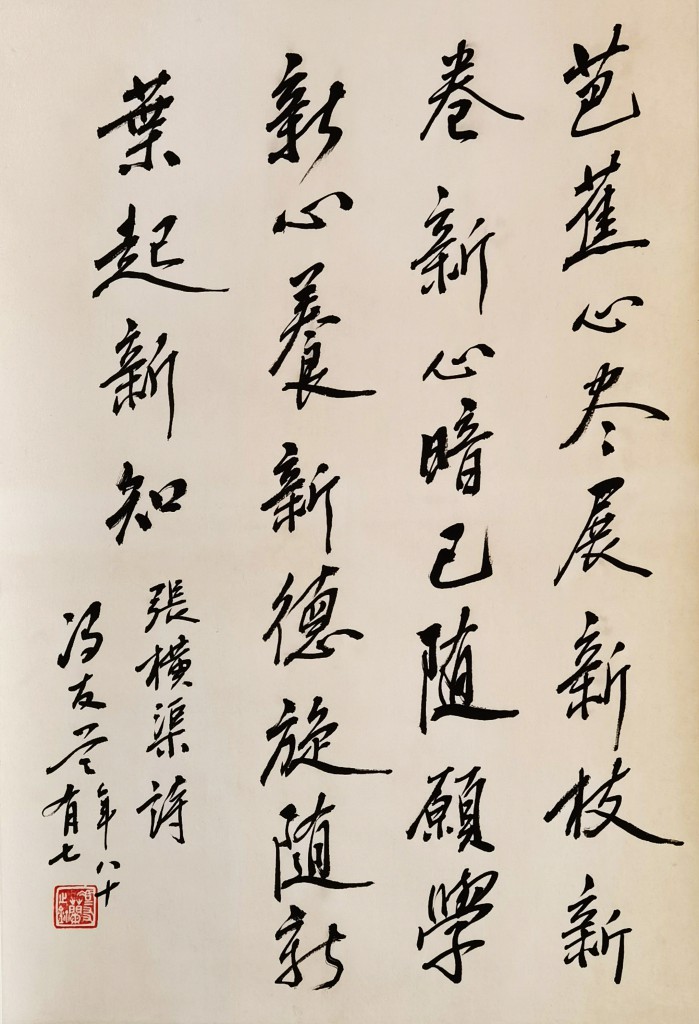 芭蕉心尽展新枝新
卷新心暗已随願學
新心養新德旋随新
葉起新知
張橫渠詩
冯友兰
年八十
有七